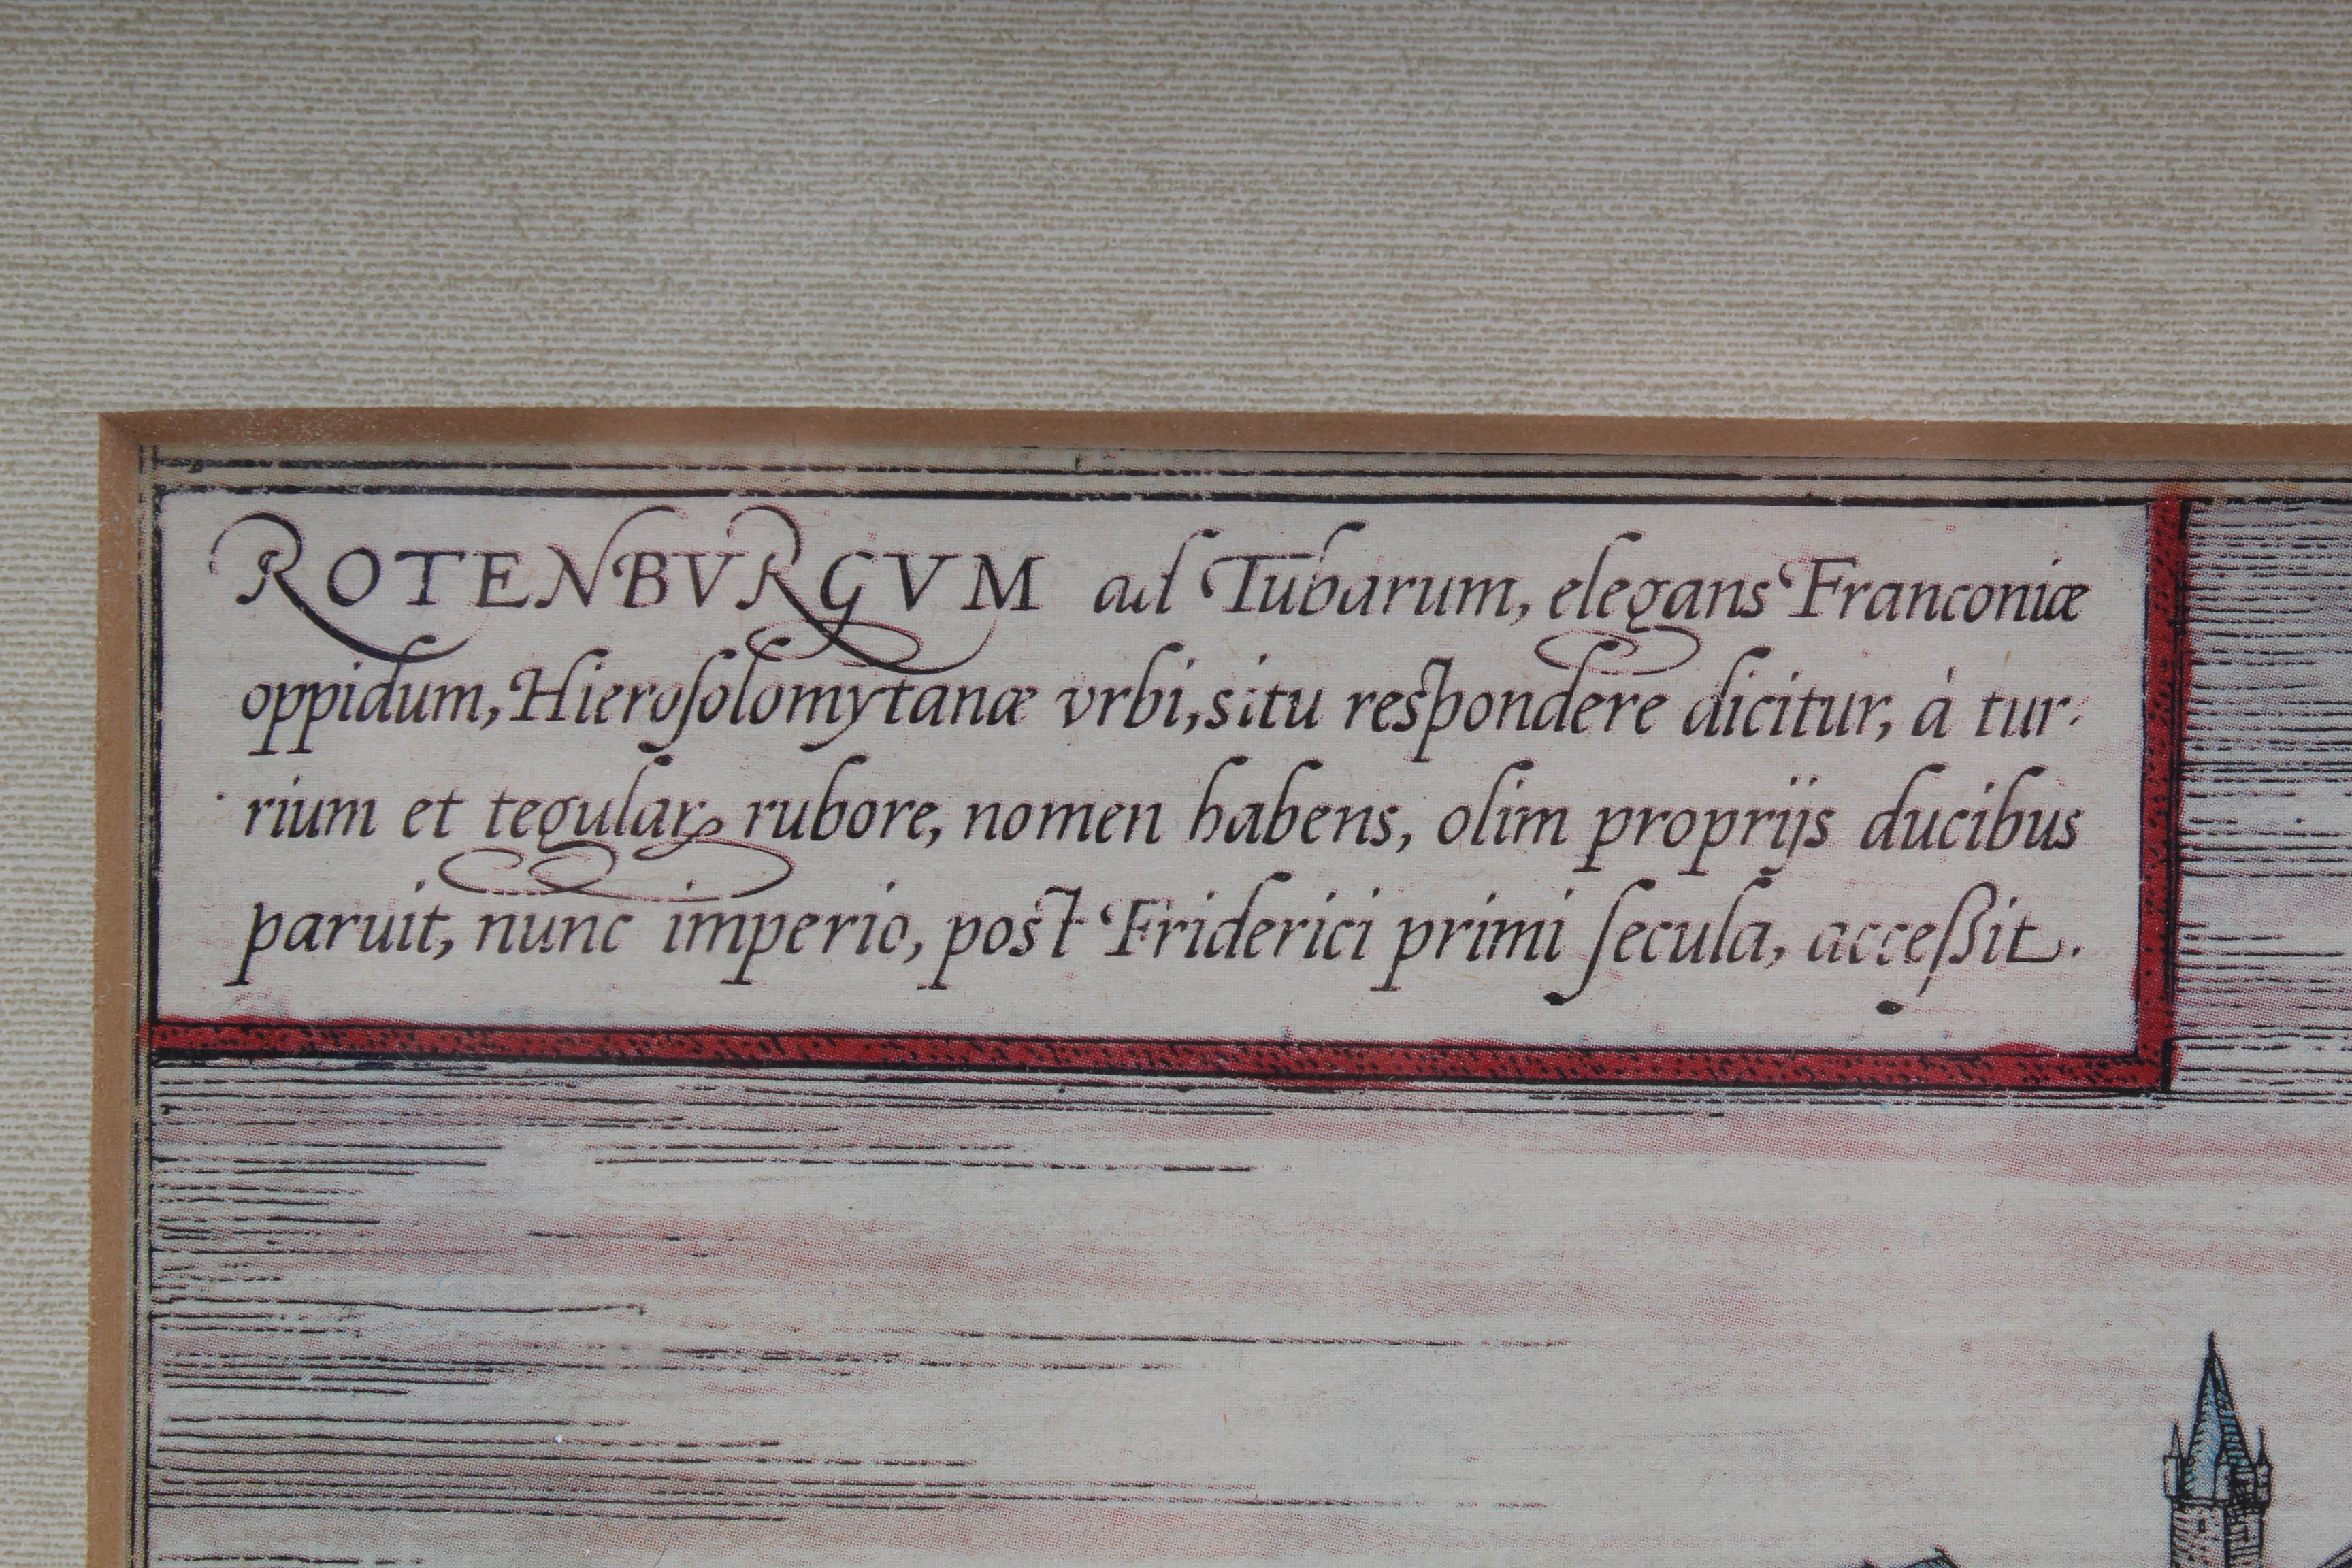 ROTENBVRGVM ad Tubarum, elegans Franconiæ
oppidum, Hieroſolomytanæ vrbi, situ respondere dicitur, à tur-
rium et tegulaꝝ rubore, nomen habens, olim proprijs ducibus
paruit, nunc imperio, post Friderici primi ſecula, acceßit.